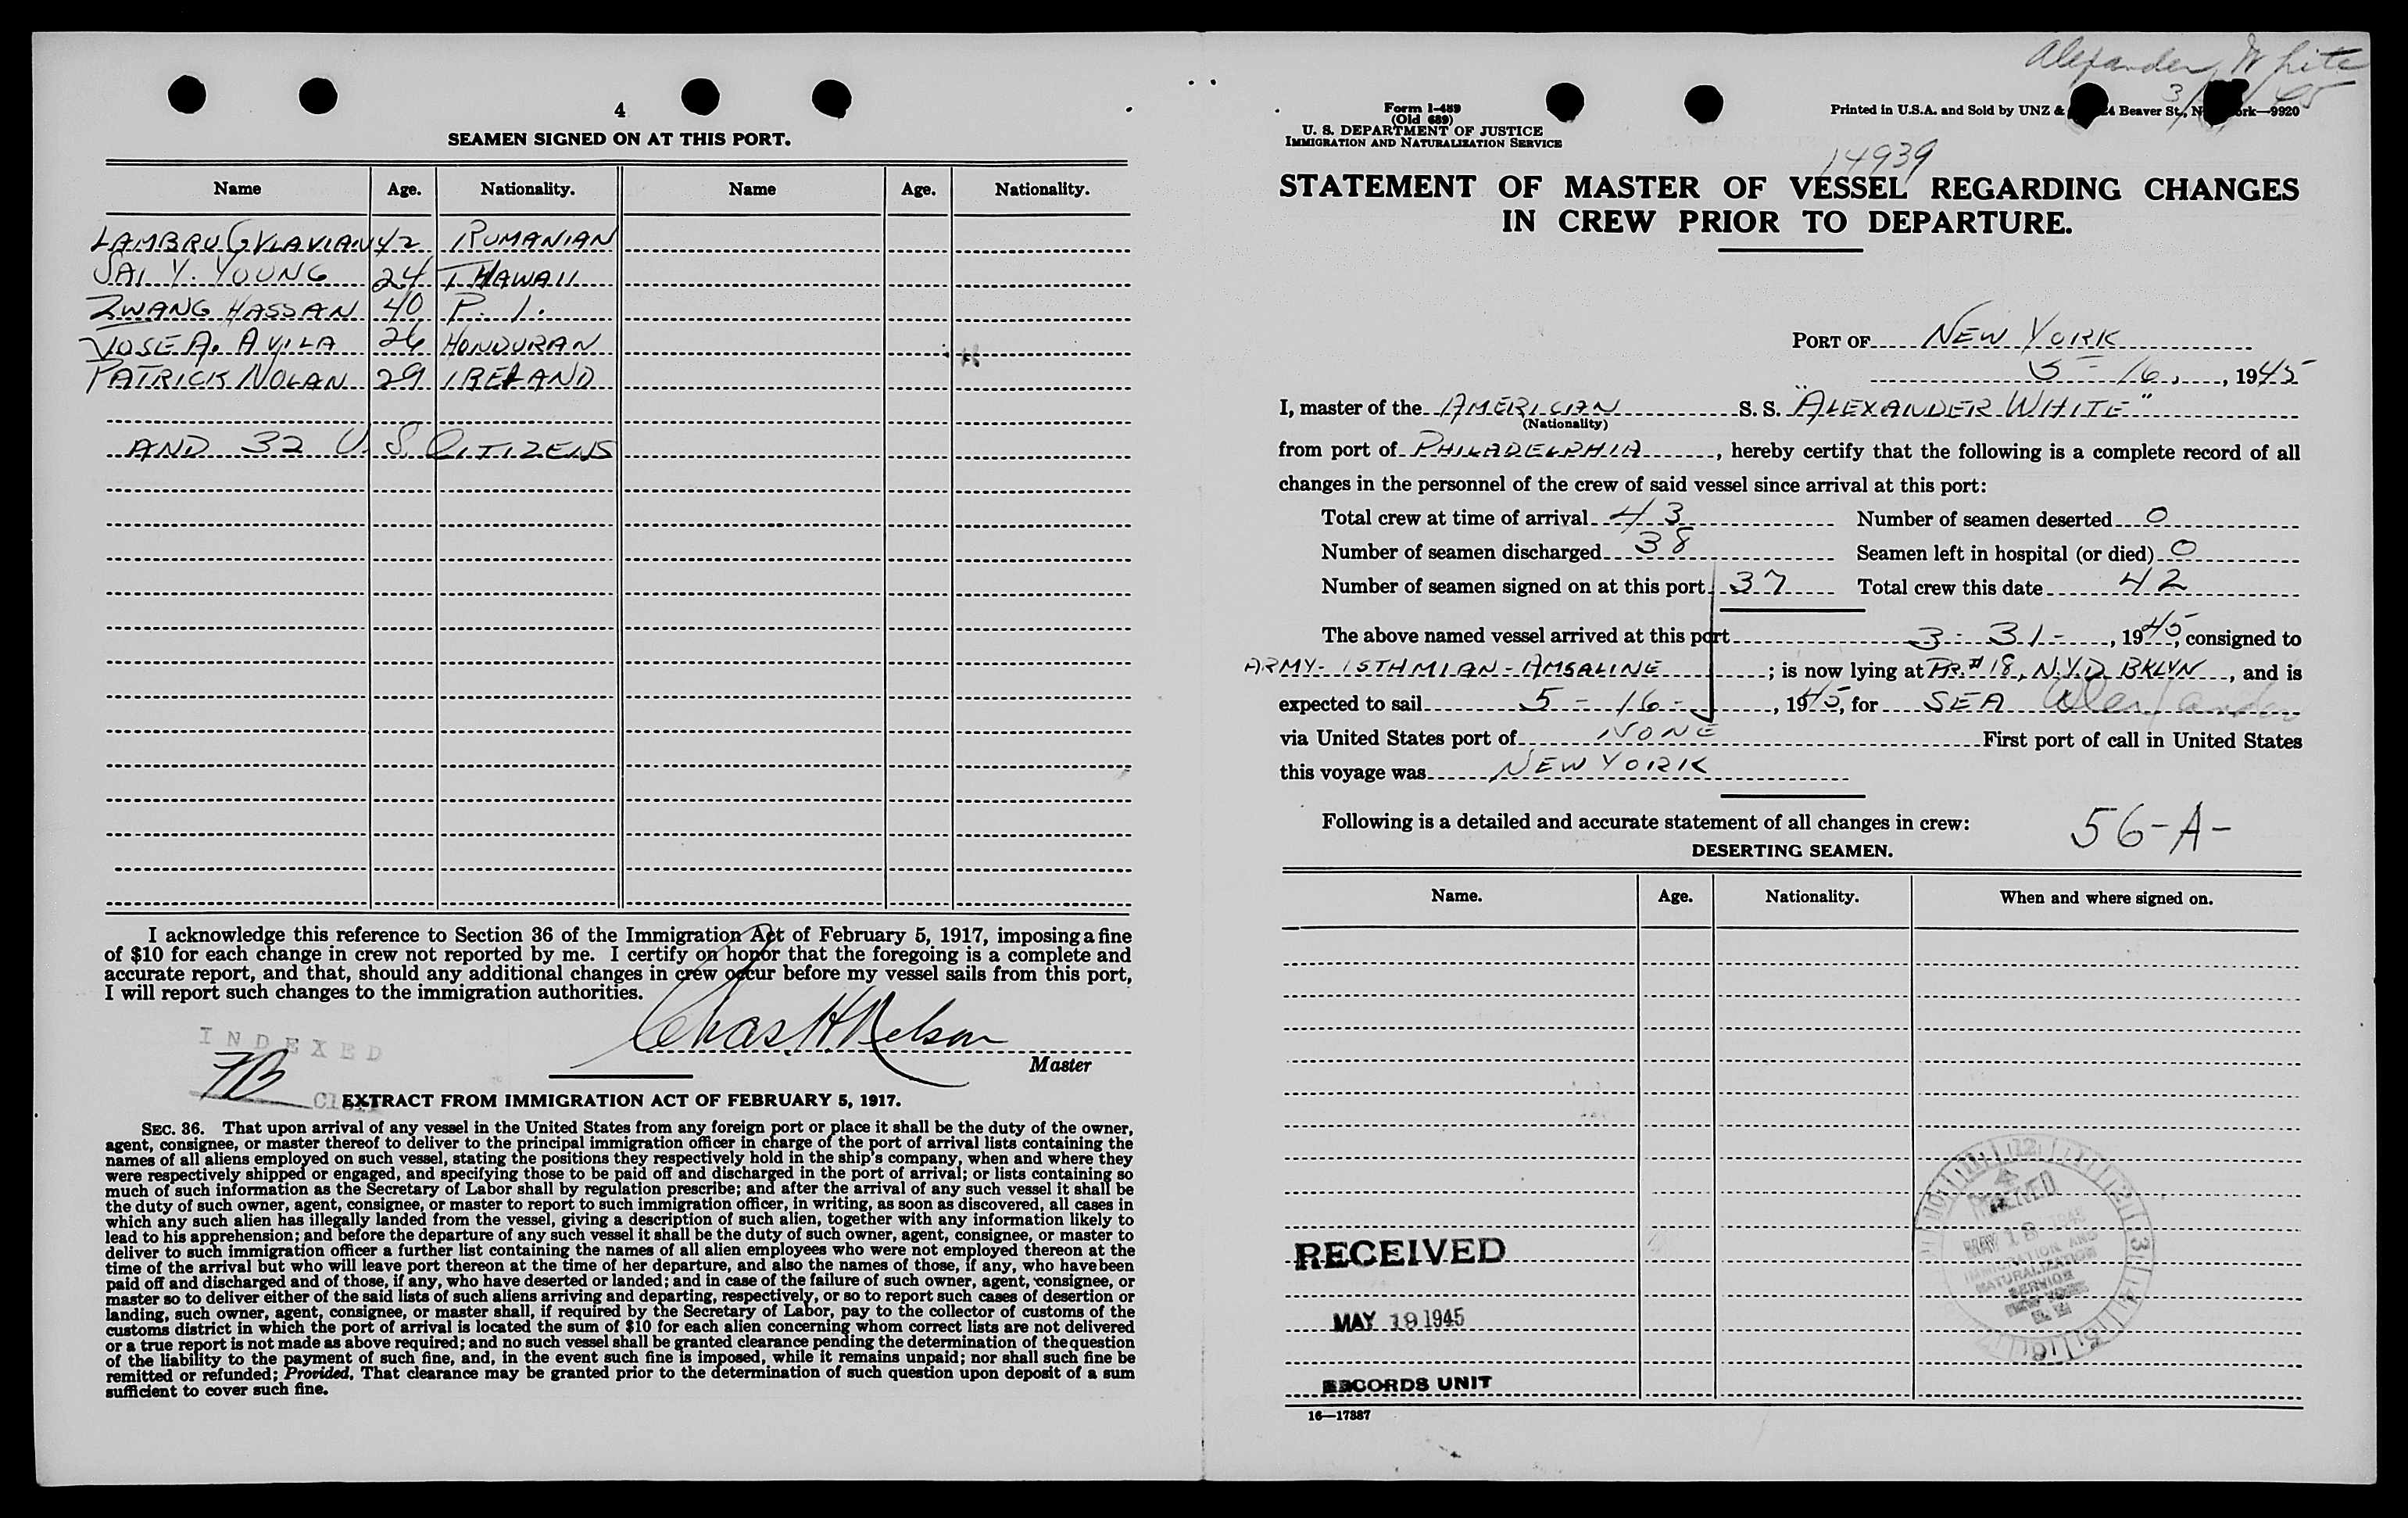 4
SEAMEN SIGNED ON AT THIS PORT.
Name Age. Nationality. Name Age. Nationality.
LAMBRU G VLAVIAN 42 RUMANIAN
SAI Y. YOUNG 24 T HAWAII
ZWANG HASSAN 40 P. I.
JOSE A. AVILA 26 HONDURAN
PATRICK NOLAN 29 IRELAND
AND 32 U. S. CITIZENS
I acknowledge this reference to Section 36 of the Immigration Act of February 5, 1917, imposing a fine
of $10 for each change in crew not reported by me. I certify on honor that the foregoing is a complete and
accurate report, and that, should any additional changes in crew occur before my vessel sails from this port,
I will report such changes to the immigration authorities.
Chas. H. Nelson
Master
INDEXED
Clerk
EXTRACT FROM IMMIGRATION ACT OF FEBRUARY 5, 1917.
SEC. 36. That upon arrival of any vessel in the United States from any foreign port or place it shall be the duty of the owner,
agent, consignee, or master thereof to deliver to the principal immigration officer in charge of the port of arrival lists containing the
names of all aliens employed on such vessel, stating the positions they respectively hold in the ship's company, when and where they
were respectively shipped or engaged, and specifying those to be paid off and discharged in the port of arrival; or lists containing so
much of such information as the Secretary of Labor shall by regulation prescribe; and after the arrival of any such vessel it shall be
the duty of such owner, agent, consignee, or master to report to such immigration officer, in writing, as soon as discovered, all cases in
which any such alien has illegally landed from the vessel, giving a description of such alien, together with any information likely to
lead to his apprehension; and before the departure of any such vessel it shall be the duty of such owner, agent, consignee, or master to
deliver to such immigration officer a further list containing the names of all alien employees who were not employed thereon at the
time of the arrival but who will leave port thereon at the time of her departure, and also the names of those, if any, who have been
paid off and discharged and of those, if any, who have deserted or landed; and in case of the failure of such owner, agent, consignee, or
master so to deliver either of the said lists of such aliens arriving and departing, respectively, or so to report such cases of desertion or
landing, such owner, agent, consignee, or master shall, if required by the Secretary of Labor, pay to the collector of customs of the
customs district in which the port of arrival is located the sum of $10 for each alien concerning whom correct lists are not delivered
or a true report is not made as above required; and no such vessel shall be granted clearance pending the determination of the question
of the liability to the payment of such fine, and, in the event such fine is imposed, while it remains unpaid; nor shall such fine be
remitted or refunded; Provided, That clearance may be granted prior to the determination of such question upon deposit of a sum
sufficient to cover such fine.
Alexander White
Form I-489
(Old 689)
U. S. DEPARTMENT OF JUSTICE
IMMIGRATION AND NATURALIZATION SERVICE
Printed in U.S.A. and Sold by UNZ & Beaver St., 9920
14939
STATEMENT OF MASTER OF VESSEL REGARDING CHANGES
IN CREW PRIOR TO DEPARTURE.
PORT OF NEW YORK
5-16, 1945
I, master of the AMERICAN S. S. "ALEXANDER WHITE"
(Nationality)
from port of PHILADELPHIA, hereby certify that the following is a complete record of all
changes in the personnel of the crew of said vessel since arrival at this port:
Total crew at time of arrival 43 Number of seamen deserted 0
Number of seamen discharged 38 Seamen left in hospital (or died) 0
Number of seamen signed on at this port 37 Total crew this date 42
The above named vessel arrived at this port 3-31-, 1945, consigned to
ARMY-ISTHMIAN-AMSALINE; is now lying at PR.#18, N.Y.D. BKLYN, and is
expected to sail 5-16-, 1945, for SEA
via United States port of NONE First port of call in United States
this voyage was NEW YORK
Following is a detailed and accurate statement of all changes in crew:
56-A-
DESERTING SEAMEN.
Name. Age. Nationality. When and where signed on.
RECEIVED
MAY 18 1945
IMMIGRATION AND
NATURALIZATION
SERVICE
RECEIVED
MAY 19 1945
RECORDS UNIT
16—17887